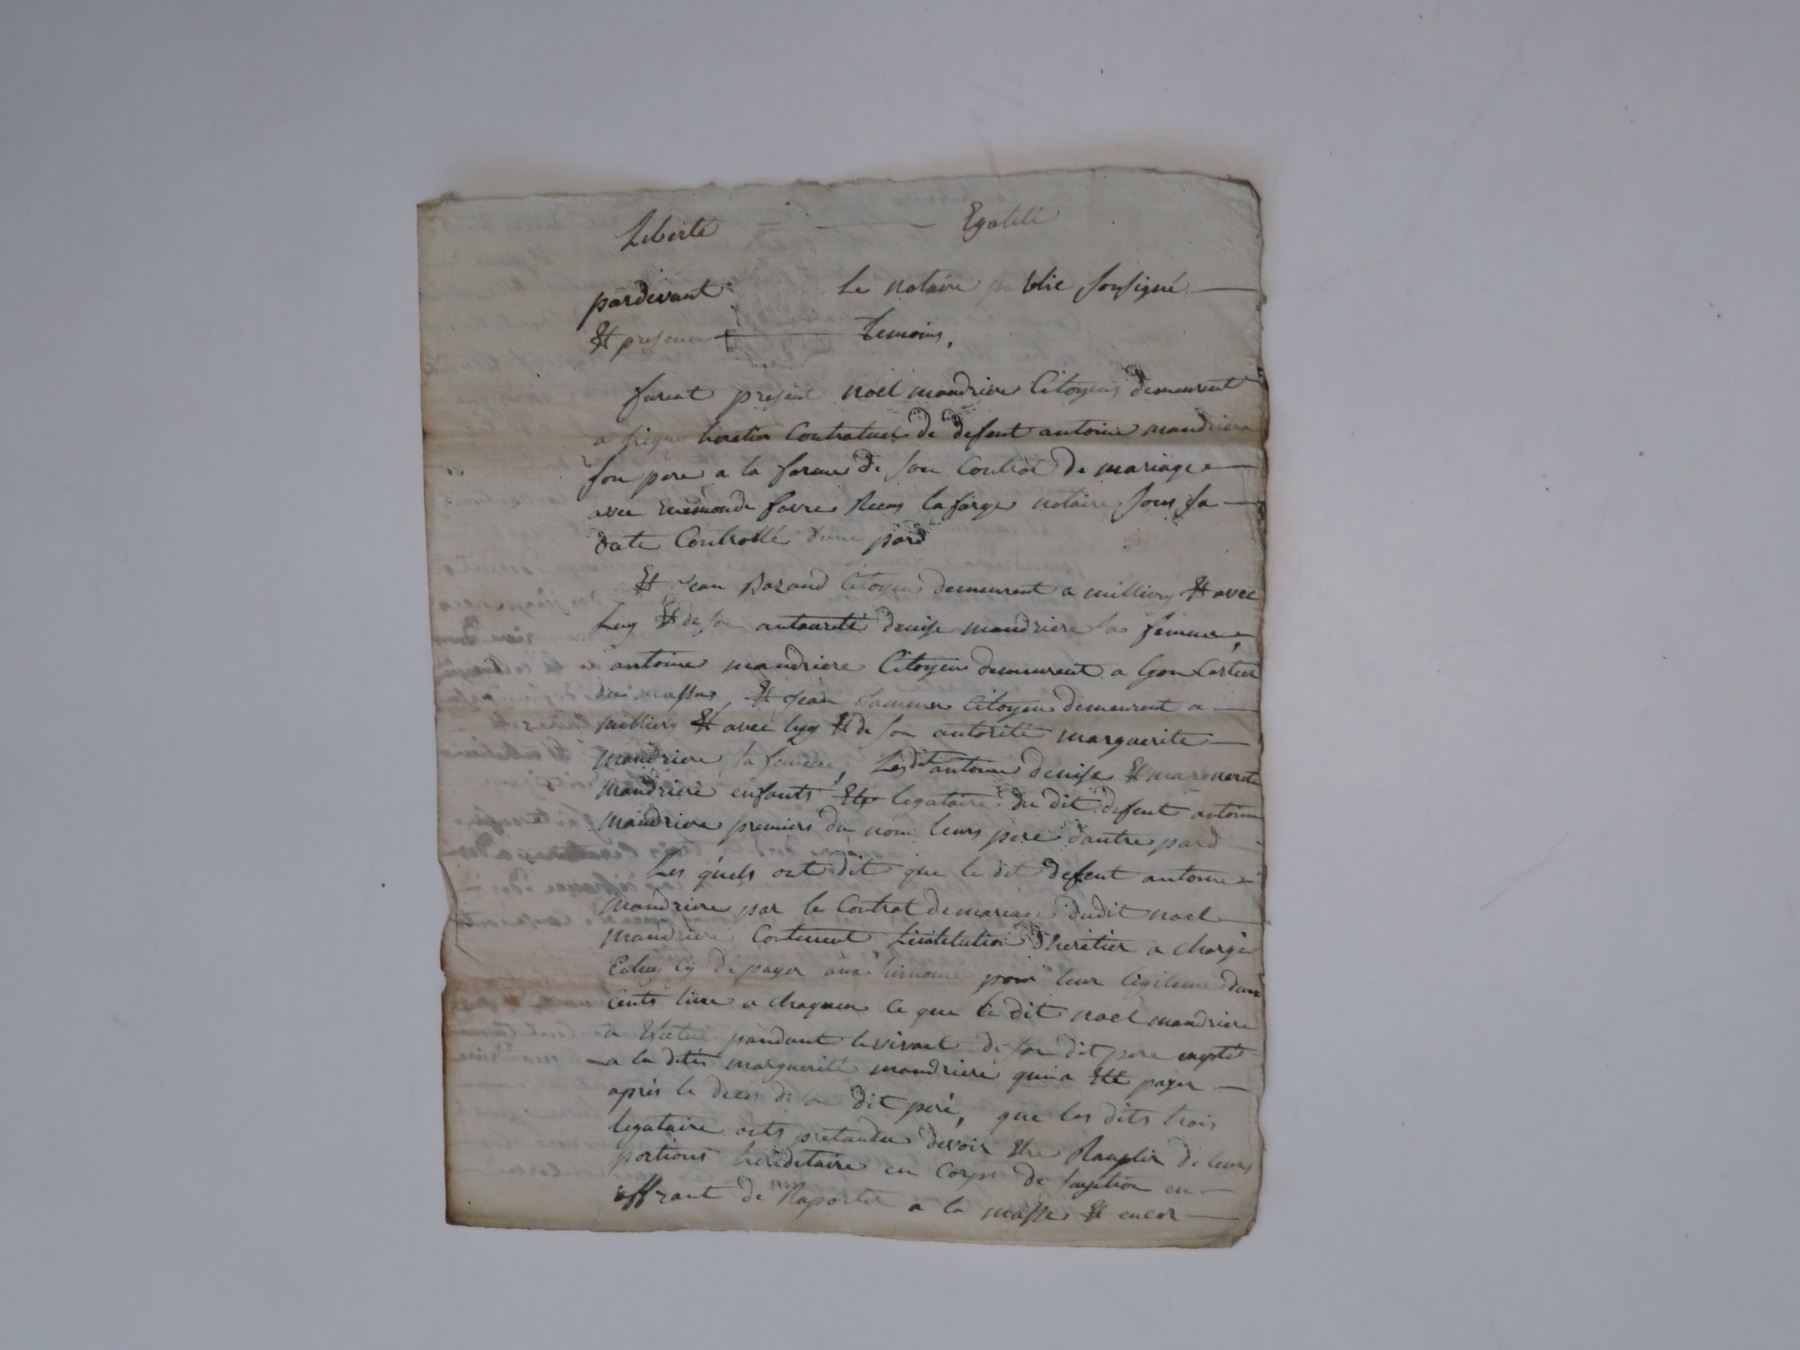 Liberté — Egalité
pardevant Le notaire public soussigné
Et presence temoins,
furent present noel mandriere Citoyens demeurent
a heretier Contratuel de defunt antoine mandriere
son pere a la forme de son Contrat de mariage
avec favre Reçu lafarge notaire sous sa
date Controllé d'une pard
Et Jean Bazaud Citoyens demeurent a milliery Et avec
Luy Et de son autaurité denise mandriere sa femme,
antoine mandriere Citoyen demeurent a Lyon
Et Jean Citoyen demeurent a
milliery Et avec luy Et de son autorité marguerite
mandriere sa femme, Lesdt antoine denise Et marguerite
mandriere enfants Et legataire du dit defent antoine
mandriere premiers du nom leurs pere d'autre pard
Les quels ont dit que le dit defent antoine
mandriere par le Contrat de mariage dudit noel
mandriere Contenent Linstitution d'heretier a chargé
de payer pour leur legitime
cents livre a chaqun ce que le dit noel mandriere
a pandant le vivant de son dit pere
a la dite marguerite mandriere payer
après le deces de son dit peré, que les dits trois
legataire onts pretandu devoir Etre Ramplir de leurs
portions heréditaire en Corps de en
offrant de Raporter a la masse Et encor